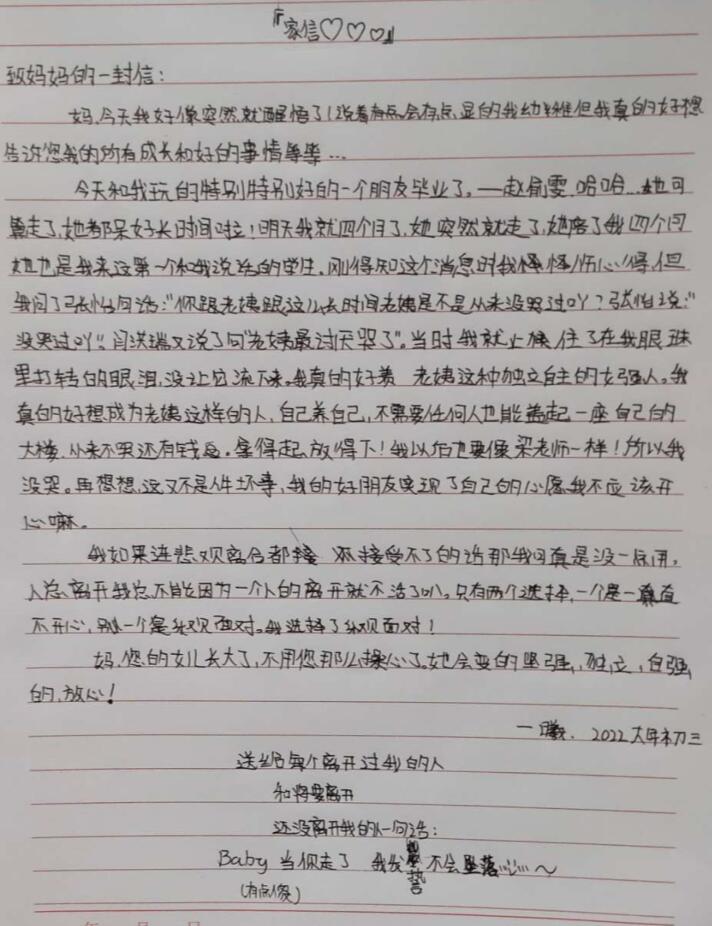 『家信♡♡♡』
致妈妈的一封信：
妈，今天我好像突然就醒悟了（说着有点会有点显的我幼稚但我真的好想
告诉您我的所有成长和好的事情等等…
今天和我玩的特别特别好的一个朋友毕业了，——赵俞雯 哈哈…她可
算走了，她都呆好长时间啦！明天我就四个月了，她突然就走了，她陪了我四个月
她也是我来这第一个和我说话的学生。刚得知这个消息时我怪怪伤心得，但
我问了张怡句话："你跟老姨跟这么长时间老姨是不是从来没哭过吖？张怡说："
没哭过吖"，闫洪瑞又说了句"老姨最讨厌哭了"。当时我就止住了在我眼珠
里打转的眼泪，没让它流下来。我真的好羡 老姨这种独立自主的女强人。我
真的好想成为老姨这样的人，自己养自己，不需要任何人也能盖起一座自己的
大楼，从来不哭还有钱。拿得起放得下！我以后也要像梁老师一样！所以我
没哭。再想想，这又不是件坏事，我的好朋友实现了自己的心愿我不应该开
心嘛。
我如果连悲欢离合都接 接受不了的话那我可真是没一点用，
人总离开我总不能因为一个人的离开就不活了叭。只有两个选择，一个是一直
不开心，另一个是乐观面对。我选择了乐观面对！
妈，您的女儿长大了，不用您那么操心了。她会变的坚强，独立，自强
的，放心！
一曦. 2022大年初三
送给每个离开过我的人
和将要离开
还没离开我的人一句话：
Baby 当你走了 我发誓不会坠落~
（有点傻）